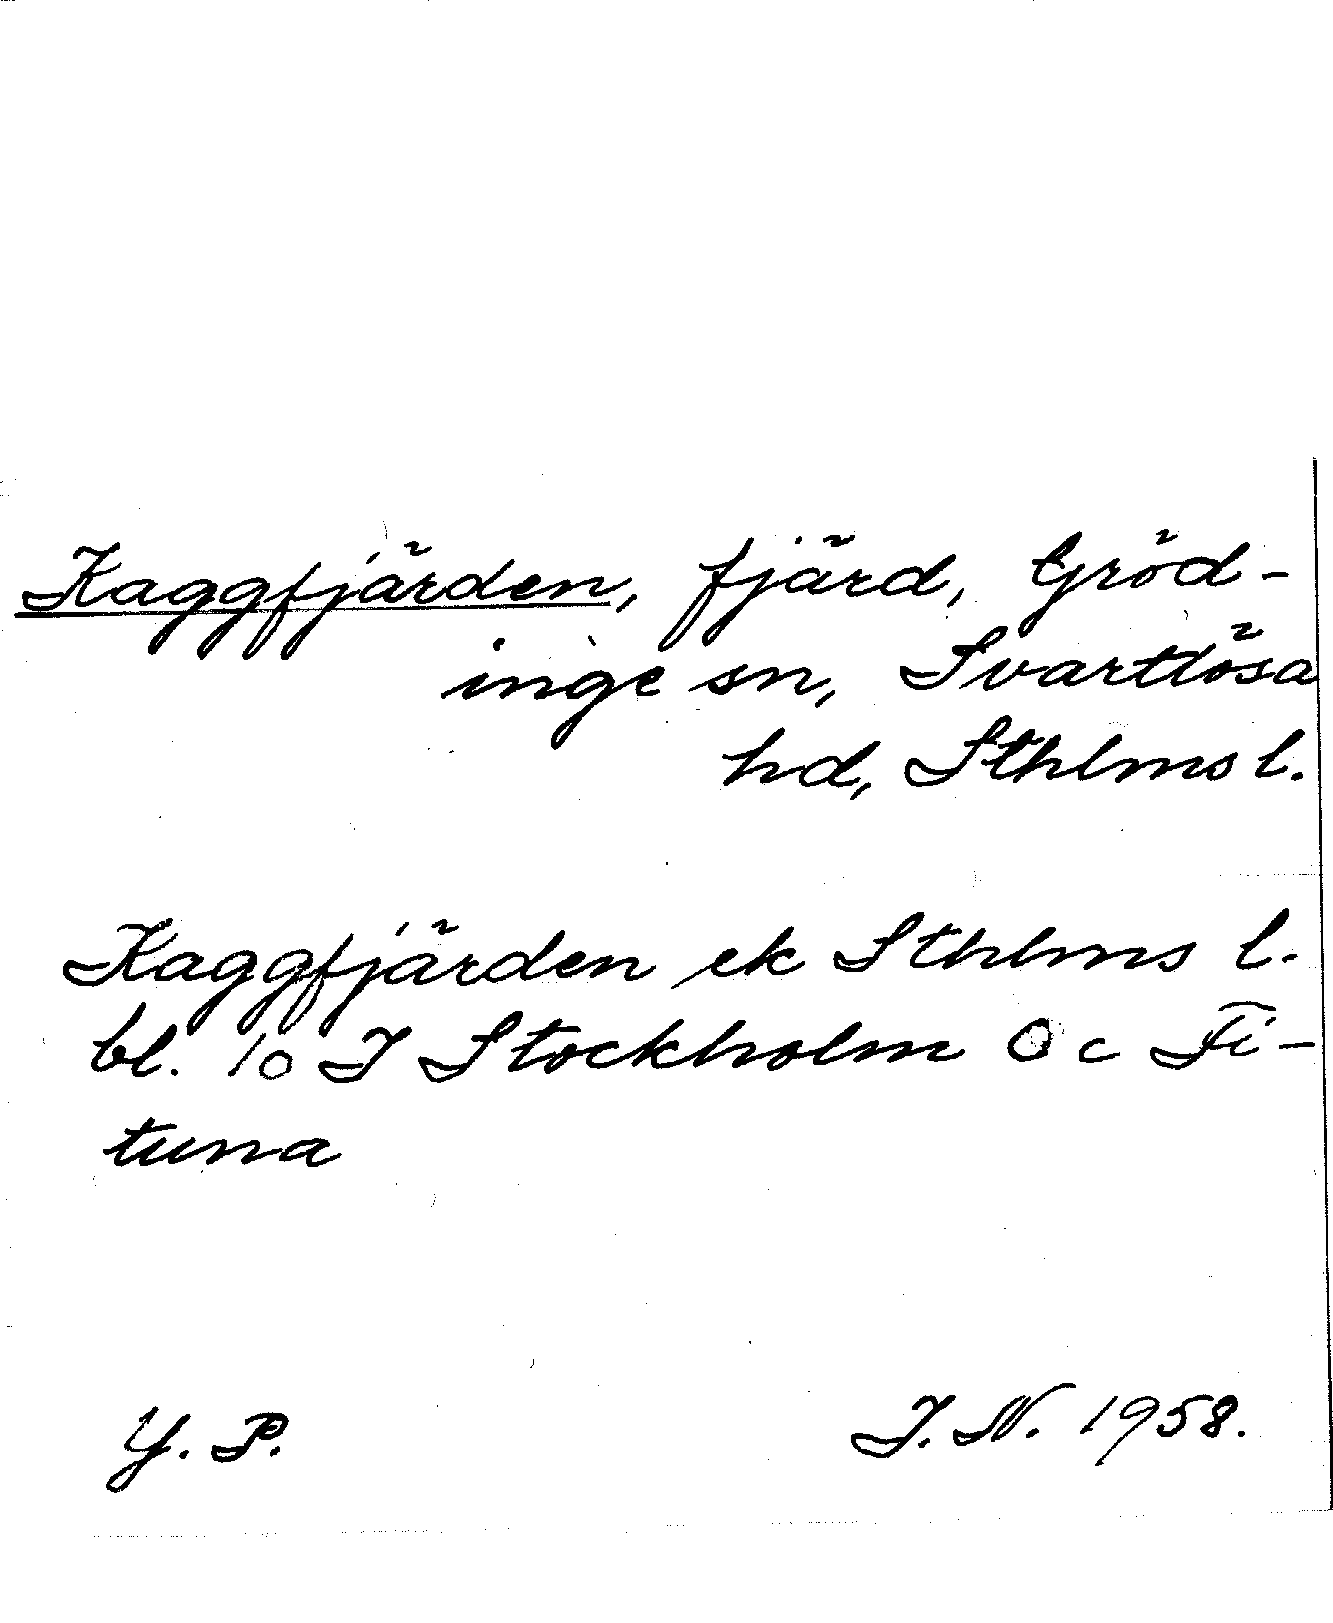 Kaggfjärden, fjärd, Gröd-
inge sn, Svartlösa
hd, Sthlms l.
Kaggfjärden ek Sthlms l.
bl. 10 I Stockholm O c Fi-
tuna
Y. P.
I. N. 1958.